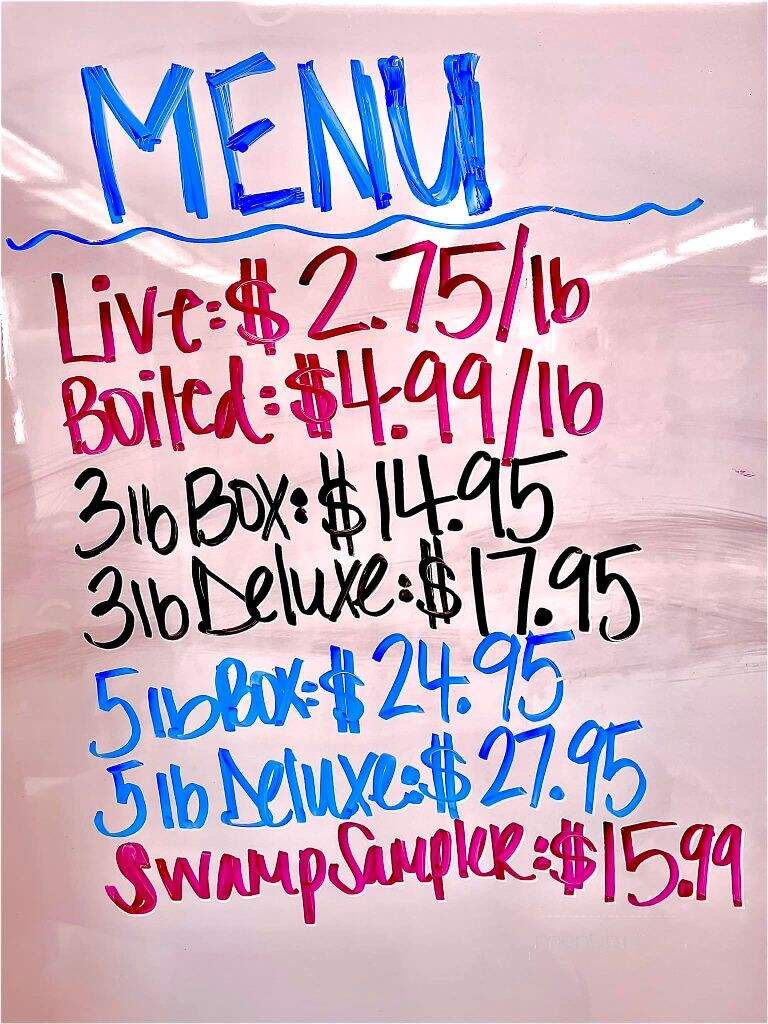 MENU
Live: $2.75/lb
Boiled: $4.99/lb
3lb Box: $14.95
3lb Deluxe: $17.95
5lb Box: $24.95
5lb Deluxe: $27.95
Swamp Sampler: $15.99